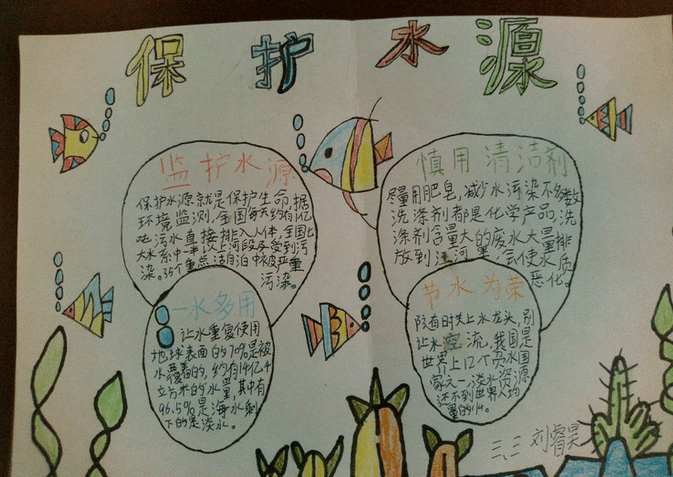 保护水源
监护水源
保护水源就是保护生命,据
环境监测,全国每天约有1亿
吨污水直接排入人体,全国七
大水系中一半以上河段受到污
染。35个重点湖泊中被严重
污染。
慎用清洁剂
尽量用肥皂,减少水污染不多数
洗涤剂都是化学产品,洗
涤剂含量大的废水大量排
放到江河里,会使水质
恶化。
一水多用
让水重复使用
地球表面的70%是被
水覆着的,约有14亿千
立方米的水量,其中有
96.5%是海水剩
下的是淡水。
节水为荣
随时关上水龙头,别
让水空流,我国是
世界上12个贫水国
家之一,淡水资源
还不到世界人均
量的1/4。
三、二 刘睿昊